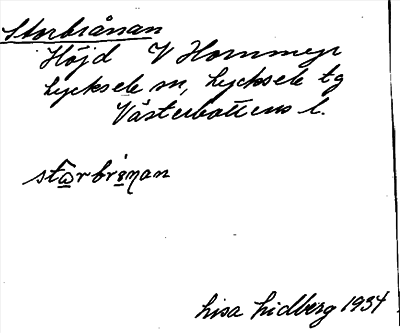 Storbrånan
Höjd V Hornmyr
Lycksele sn, Lycksele tg
Västerbottens l.
Lisa Lidberg 1934